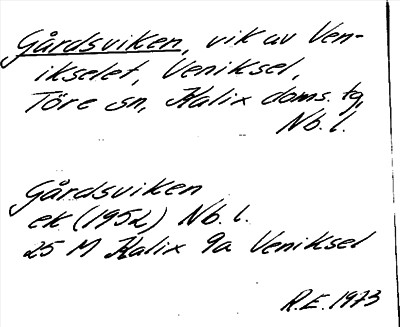 Gårdsviken, vik av Ven-
ikselet, Veniksel,
Töre sn, Kalix doms. tg,
Nb. l.
Gårdsviken
ek (1952) Nb. l.
25 M Kalix 9a Veniksel
R.E. 1973